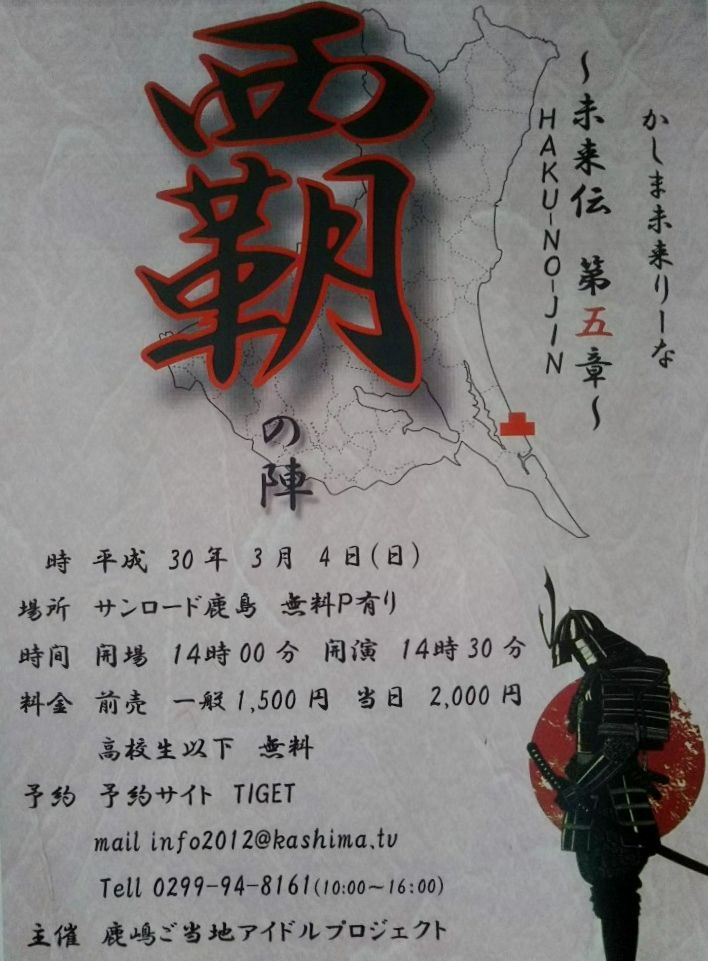 かしま未来りーな
～未来伝 第五章～
HAKU-NO-JIN
覇
の
陣
時 平成 30年 3月 4日(日)
場所 サンロード鹿島 無料P有り
時間 開場 14時00分 開演 14時30分
料金 前売 一般1,500円 当日 2,000円
高校生以下 無料
予約 予約サイト TIGET
mail info2012@kashima.tv
Tell 0299-94-8161(10:00～16:00)
主催 鹿嶋ご当地アイドルプロジェクト